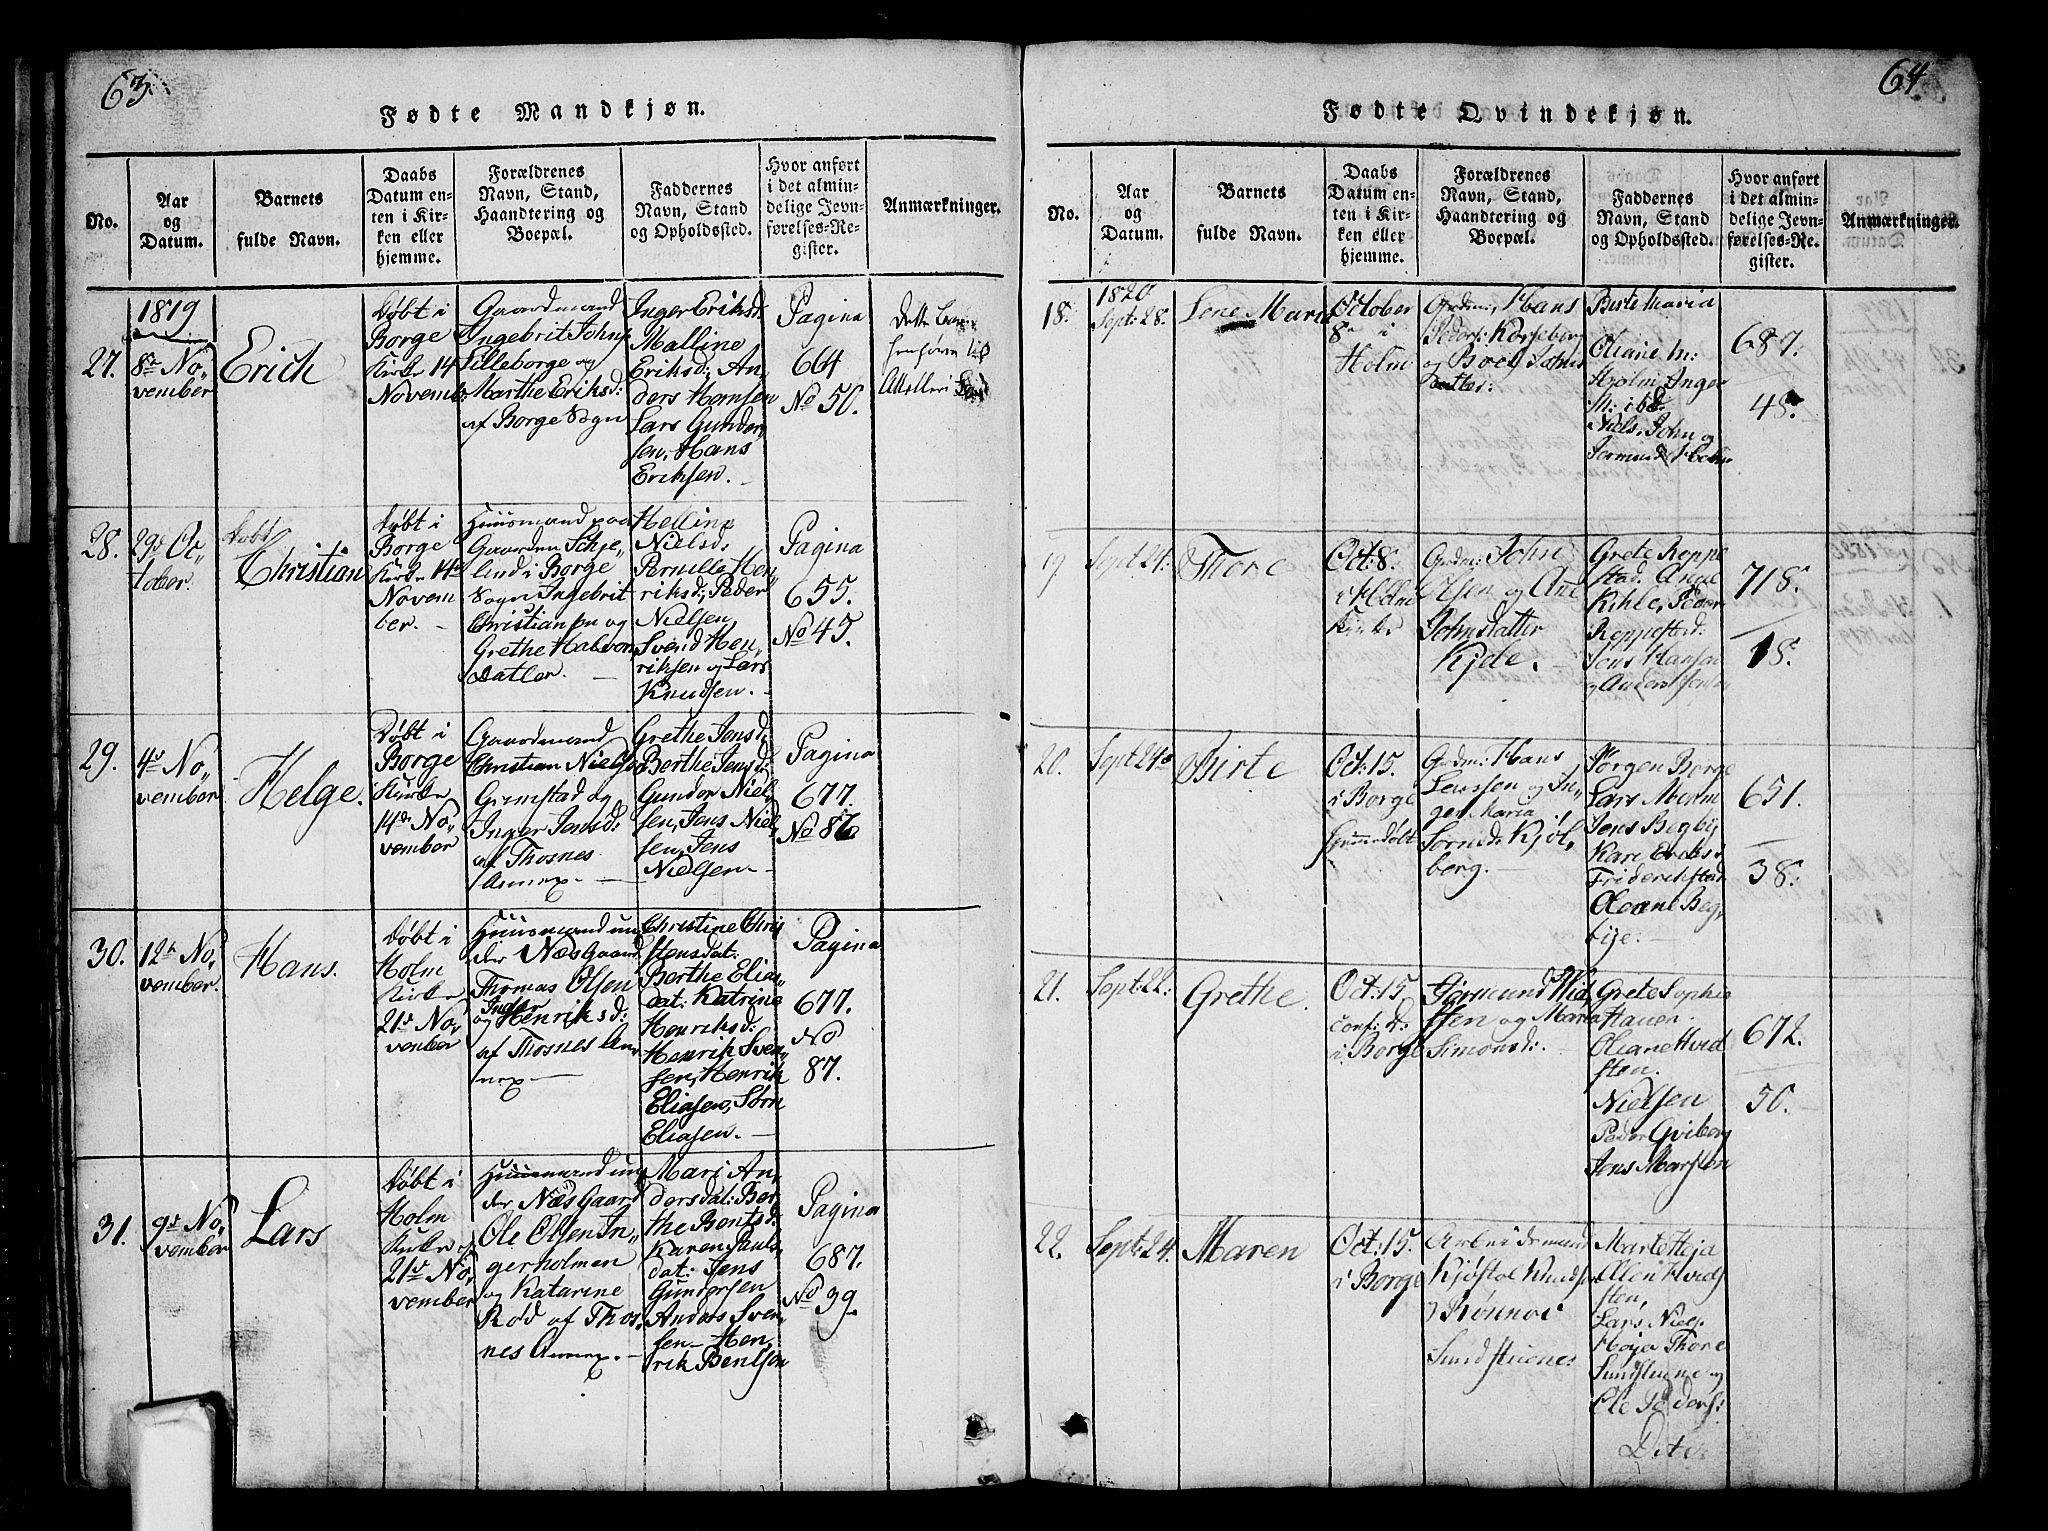 63
Fødte Mandkjøn.
No.
Aar
og
Datum.
Barnets
fulde Navn.
Daabs
Datum en-
ten i Kir-
ken eller
hjemme.
Forældrenes
Navn, Stand,
Haandtering og
Boepæl.
Faddernes
Navn, Stand
og Opholdssted.
Hvor anført
i det almin-
delige Jevn-
førelses-Re-
gister.
Anmærkninger.
27.
1819
8de No,,
vember
Erich
Døbt i
Borge
Kirke 14
Novemb
Gaardmand
Ingebrit Johns
Lilleborge og
Marthe Eriksd:
af Borge Sogn
Inger Eriksd:
Malline
Eriksd: An,
ders Hansen
Lars Gunder,
sen, Hans
Eriksen.
Pagina
664
No 50.
Dette
28.
29de Oc,,
tober.
Døbt
Christian
Døbt i
Borge
Kirke 14de
Novem
ber.
Huusmand paa
Gaarden Schje,
lind i Borge
Sogn Ingebrit
Christiansen og
Grethe Halvor
Datter.
Helline
Nielsd:
Pernille Hen,
riksd:, Peder
Nielsen,
Svend Hen,
riksen og Lars
Knudsen.
Pagina
655.
No 45.
29.
4de No,,
vember
Helge.
Døbt i
Borge
Kirke
14de No,,
vember
Gaardmand
Christian Nielse
Grimstad og
Inger Jensd:
af Thosnes
Annex.
Grethe Jensd:
Berthe Jensd:
Gunder Niel,
sen, Jens Niel,
sen, Jens
Nielsen
Pagina
677.
No 86
30.
12te No,,
vember.
Hans.
Døbt i
Holm
Kirke
21de No,,
vember
Huusmand un
der Næs Gaard
Thomas Olsen
og Inger Henriksd:
af Thosnes An,
nex
Christine Chris
tensdat:
Berthe Elias,
dat: Katrine
Henriksd:
Henrik Sven,
sen, Henrik
Eliasen, Sørn
Eliasen.
Pagina
677.
No
87.
31.
9de No,,
vember
Lars
Døbt i
Holm
Kirke
21de No,,
vember
Huusmand un,
der Næs Gaard
Ole Olsen In,,
gerholmen
og Katarine
Rød af Thos,
nes Annex.
Mari An,
dersdat: Ber
the Bentsd:
Karen Pauls
dat: Jens
Gundersen
Anders Sven,
sen Hen,
rik Bentsen
Pagina
687.
No 39.
64
Fødte Qvindekjøn.
No.
Aar
og
Datum.
Barnets
fulde Navn.
Daabs
Datum en-
ten i Kir-
ken eller
hjemme.
Forældrenes
Navn, Stand,
Haandtering og
Boepæl.
Faddernes
Navn, Stand
og Opholdssted.
Hvor anført
i det almin-
delige Jevn-
førelses-Re-
gister.
Anmærkninger.
18.
1820
Sept: 28.
Lene Maria
October
8de i
Holm
Grdm: Hans
og Boel Johns
datter:
Birte Maria
Oliane
Holm Inger
Niels, John og
687.
48.
19
Sept 24.
Thore
Oct: 8.
i Holm
Kirke
Grdm: John
Olsen og Ane
Johnsdatter
Kjele.
Grete Reppe
stad. Ane
Kihle, Peder
Reppestad:
Jens Hansen
og Anders Jensen
718.
18.
20.
Sept 24de
Birte
Oct: 15.
i Borge
Grdm: Hans
Larsson og In,
ger Maria
Sørnsd: Kjøl,
berg.
Jørgen Borge
Lars Moum
Jens Begby
Kari Eriksd:
Friderichstad
Oleane Beg,
bye.
651.
38.
21.
Sept 22.
Grethe
Oct: 15.
conf: D:
i Borge
Gjermund Hvid
sten og Maria
Simonsd:
Grete Sophie
Hauen
Oliane Hvid
sten.
Nielsen
Peder Qviberg
Jens Marsten
672.
50.
22.
Sept: 24.
Maren
Oct: 15.
i Borge
Arbeidsmand
Kjøstol Knudsen
Rønnov
Sundstuene
Marte Heja
Ellen Hvids
sten,
Lars Niels
Høja Thore
Sundstuene og
Ole Peders: